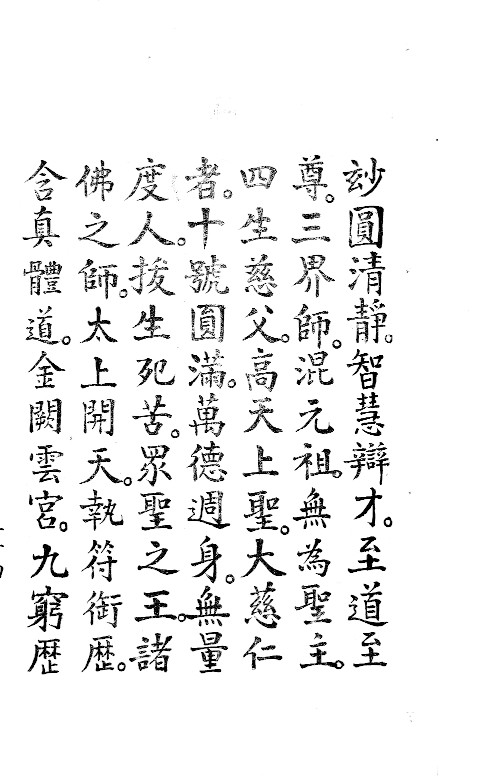 玅圓清靜。智慧辯才。至道至
尊。三界師。混元祖。無為聖主。
四生慈父。高天上聖。大慈仁
者。十號圓滿。萬德週身。無量
度人。拔生死苦。眾聖之王。諸
佛之師。太上開天。執符御歷。
含真體道。金闕雲宮。九窮歷